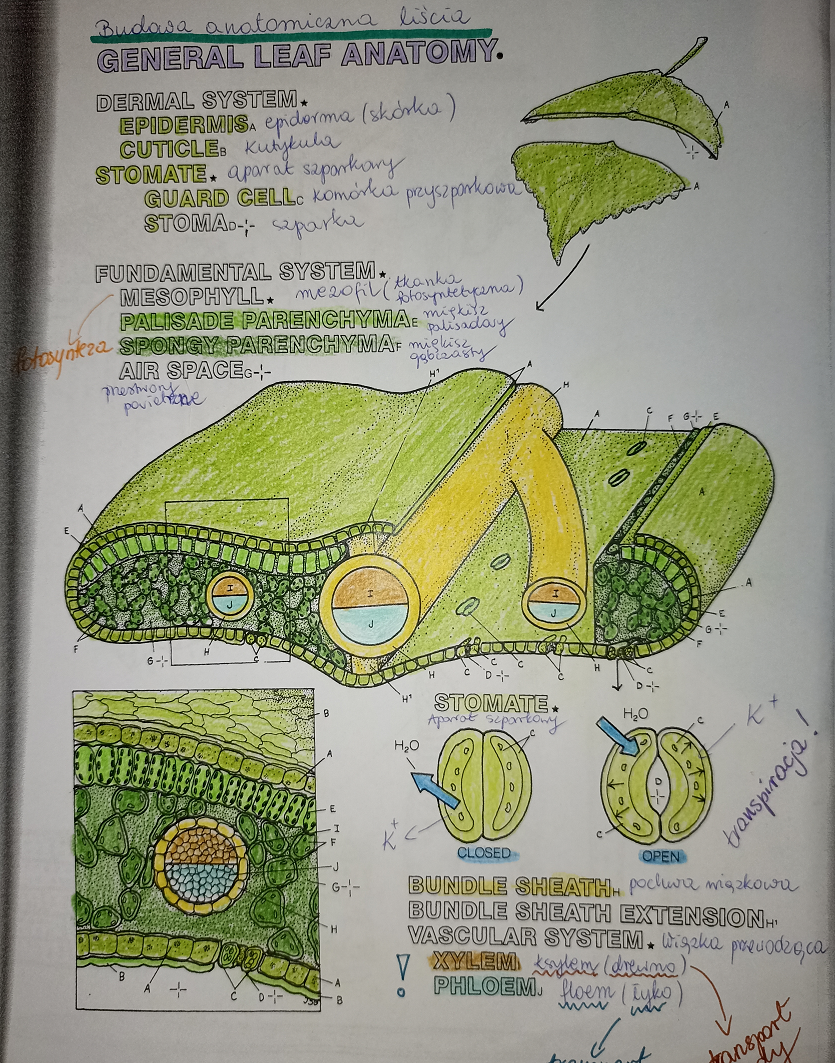 Budowa anatomiczna liścia
GENERAL LEAF ANATOMY.
DERMAL SYSTEM★
EPIDERMIS A epiderma (skórka)
CUTICLE B kutykula
STOMATE★ aparat szparkowy
GUARD CELL C komórka przyszparkowa
STOMA D-¦- szparka
A
-¦-
A
FUNDAMENTAL SYSTEM★
MESOPHYLL★ mezofil (tkanka fotosyntetyczna)
PALISADE PARENCHYMA E miękisz palisadowy
fotosynteza
SPONGY PARENCHYMA F miękisz gąbczasty
AIR SPACE G-¦-
przestwory powietrzne
H¹ A H A C F G-¦- E
A
E
A
I
J
I
J
I
J
A
E
G-¦-
F
F
G-¦- H C H¹ H C D-¦- C C H C
D-¦-
B
A
E
I
F
J
G-¦-
H
B A -¦- C D-¦- A
B
STOMATE★
Aparat szparkowy
H₂O
C
K⁺
CLOSED
H₂O
C
K⁺
D
-¦-
C
OPEN
transpiracja!
BUNDLE SHEATH H pochwa wiązkowa
BUNDLE SHEATH EXTENSION H¹
VASCULAR SYSTEM★ Wiązka przewodząca
! XYLEM I ksylem (drewno)
PHLOEM J floem (łyko)
transport
transport